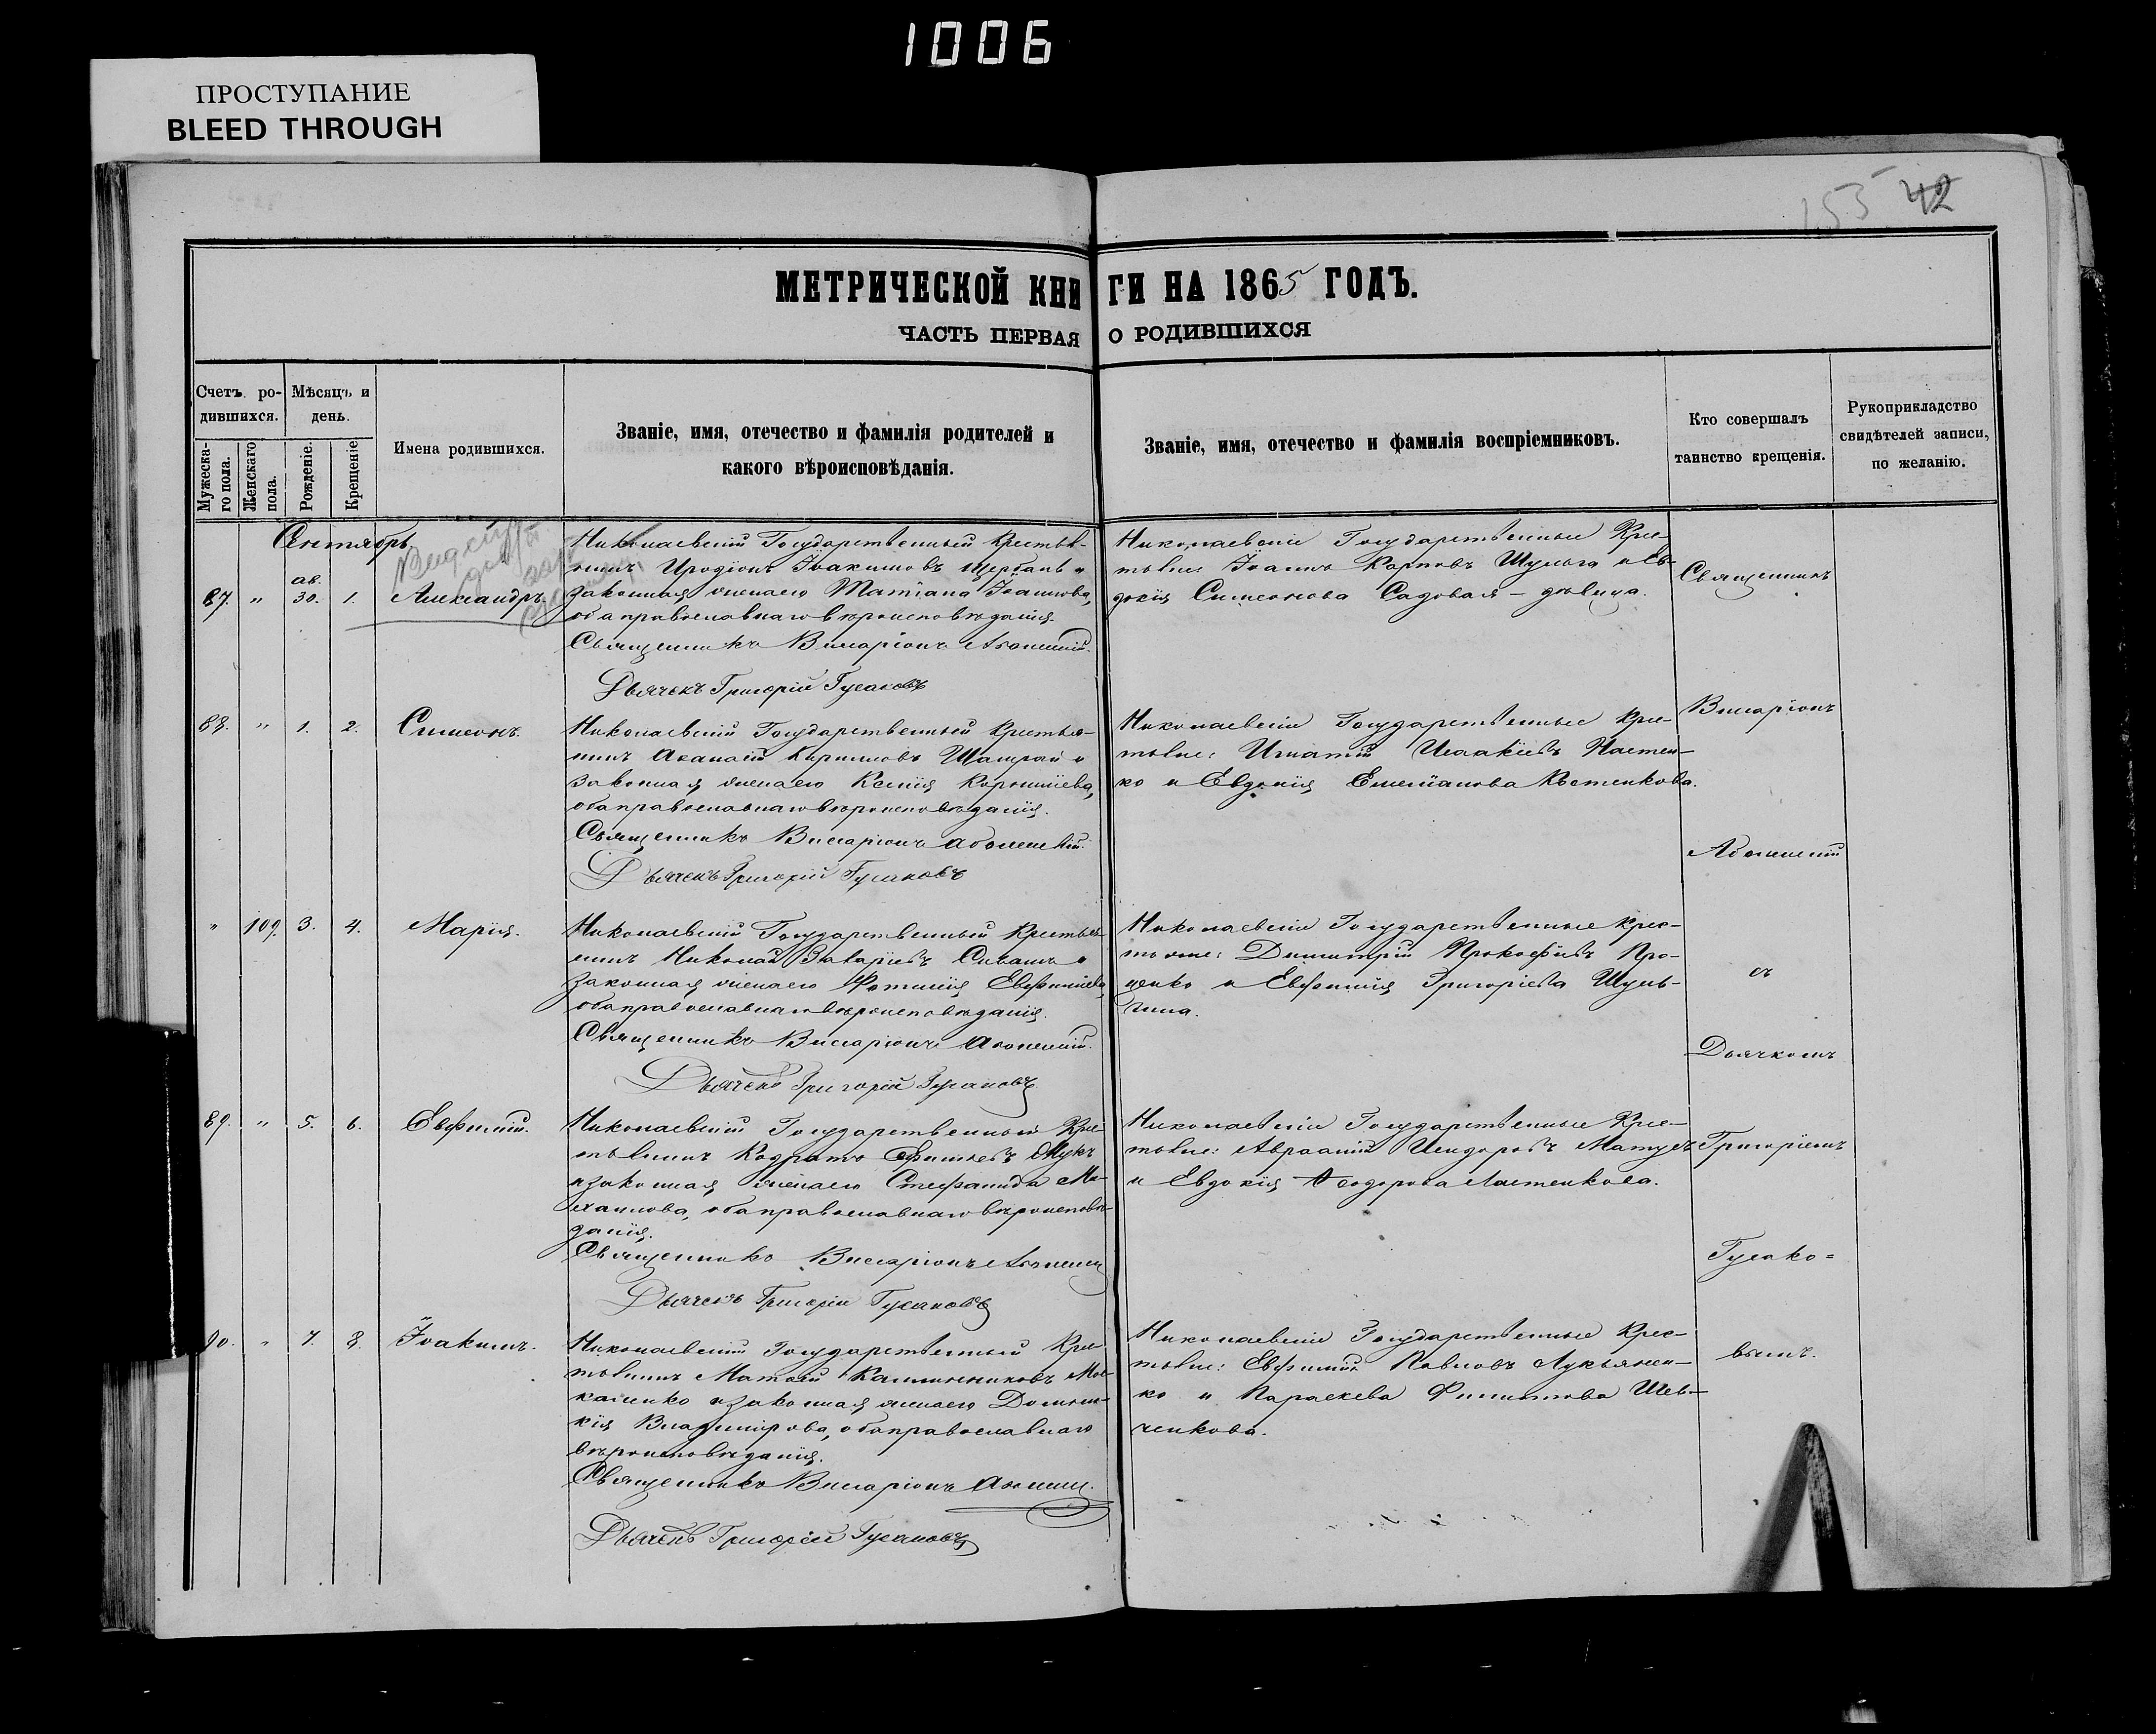 1006
ПРОСТУПАНИЕ
BLEED THROUGH
155 42
МЕТРИЧЕСКОЙ КНИГИ НА 1865 ГОДЪ.
ЧАСТЬ ПЕРВАЯ О РОДИВШИХСЯ
Счетъ ро-
дившихся.
Мужеска-
го пола.
Женскаго
пола.
Мѣсяцъ и
день.
Рожденіе.
Крещеніе
Имена родившихся.
Званіе, имя, отечество и фамилія родителей и
какого вѣроисповѣданія.
Званіе, имя, отечество и фамилія воспріемниковъ.
Кто совершалъ
таинство крещенія.
Рукоприкладство
свидѣтелей записи,
по желанію.
Сентябрь
87. " ав. 30. 1. Александръ.
Николаевскій Государственный Крестья-
нинъ Иродіонъ Іоакимовъ Щербань и
законная жена его Татіана Іоаннова,
оба православнаго вѣроисповѣданія.
Священникъ Виссаріонъ
Дьячекъ Григорій Гусаковъ
Николаевскіе Государственные Кре-
стьяне Іоаннъ Карповъ Шульга и Ев-
докія Симеонова Садовая – дѣвица.
88. " 1. 2. Симеонъ.
Николаевскій Государственный Крестья-
нинъ Аѳанасій Кириловъ и
законная жена его Ксенія Корниліева,
оба православнаго вѣроисповѣданія.
Священникъ Виссаріонъ
Дьячекъ Григорій Гусаковъ
Николаевскіе Государственные Кре-
стьяне: Игнатій Исаакіевъ Настен-
ко и Евдокія Емеліанова Костенкова.
" 109. 3. 4. Марія.
Николаевскій Государственный Крестья-
нинъ Николай Захаріевъ Сивашъ и
законная жена его Фотинія Евфиміева,
оба православнаго вѣроисповѣданія.
Священникъ Виссаріонъ
Дьячекъ Григорій Гусаковъ
Николаевскіе Государственные Крес-
тьяне: Димитрій Прокофіевъ Про-
ценко и Евфимія Григоріева Шуль-
гина.
89. " 5. 6. Евфимій.
Николаевскій Государственный Кре-
стьянинъ Кодратъ Ефимьевъ Жукъ
и законная жена его Стефанида Ми-
хаилова, оба православнаго вѣроисповѣ-
данія.
Священникъ Виссаріонъ
Дьячекъ Григорій Гусаковъ
Николаевскіе Государственные Кре-
стьяне: Авраамій Исидоровъ
и Евдокія Ѳеодорова Ластенкова.
90. " 7. 8. Іоакимъ.
Николаевскій Государственный Кре-
стьянинъ Матѳей Каллиниковъ Мос-
каленко и законная жена его Домни-
кія Владимірова, оба православнаго
вѣроисповѣданія.
Священникъ Виссаріонъ
Дьячекъ Григорій Гусаковъ
Николаевскіе Государственные Крес-
тьяне: Евфимій Павловъ Лукьянен-
ко и Параскева Филиппова Шев-
ченкова.
Священникъ
Виссаріонъ
съ
Дьячкомъ
Григоріемъ
Гусако=
вымъ.